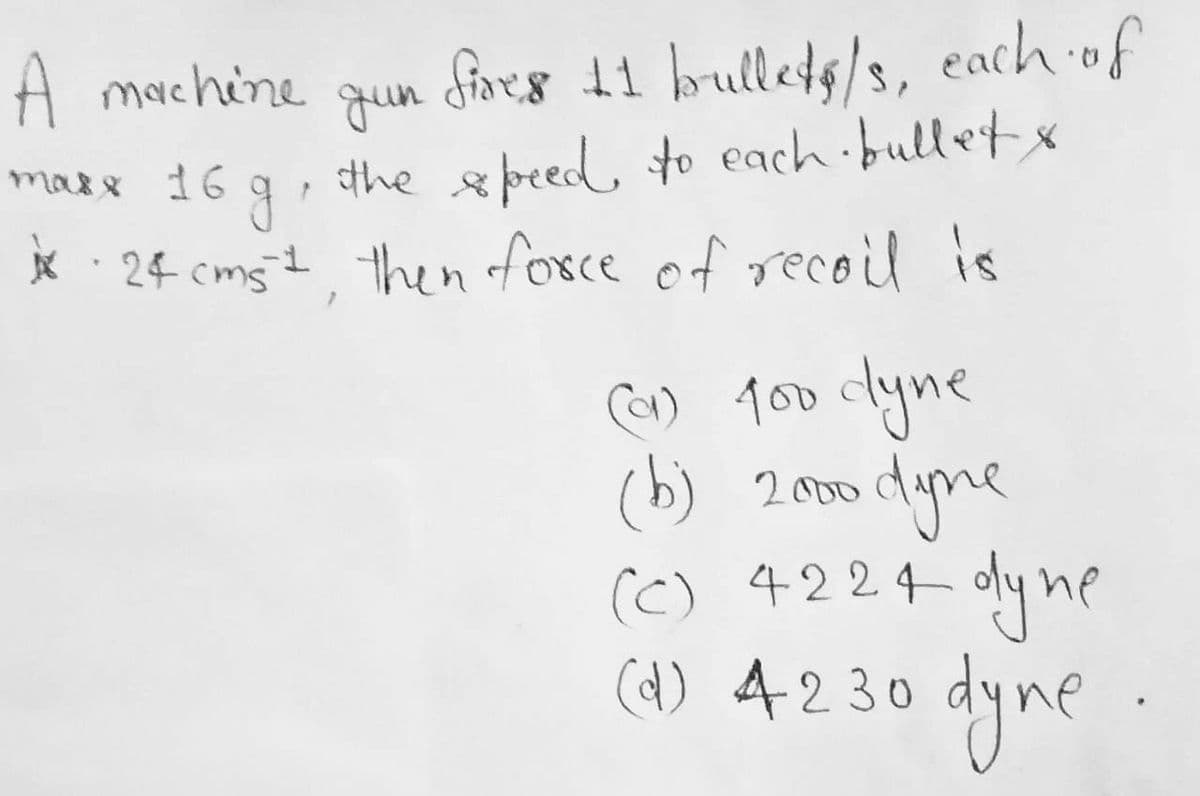 A machine gun fires 11 bullets/s, each of
mass 16 g, the speed, to each bullets
is 24 cms⁻¹, then force of recoil is
(a) 400 dyne
(b) 2000 dyne
(c) 4224 dyne
(d) 4230 dyne.